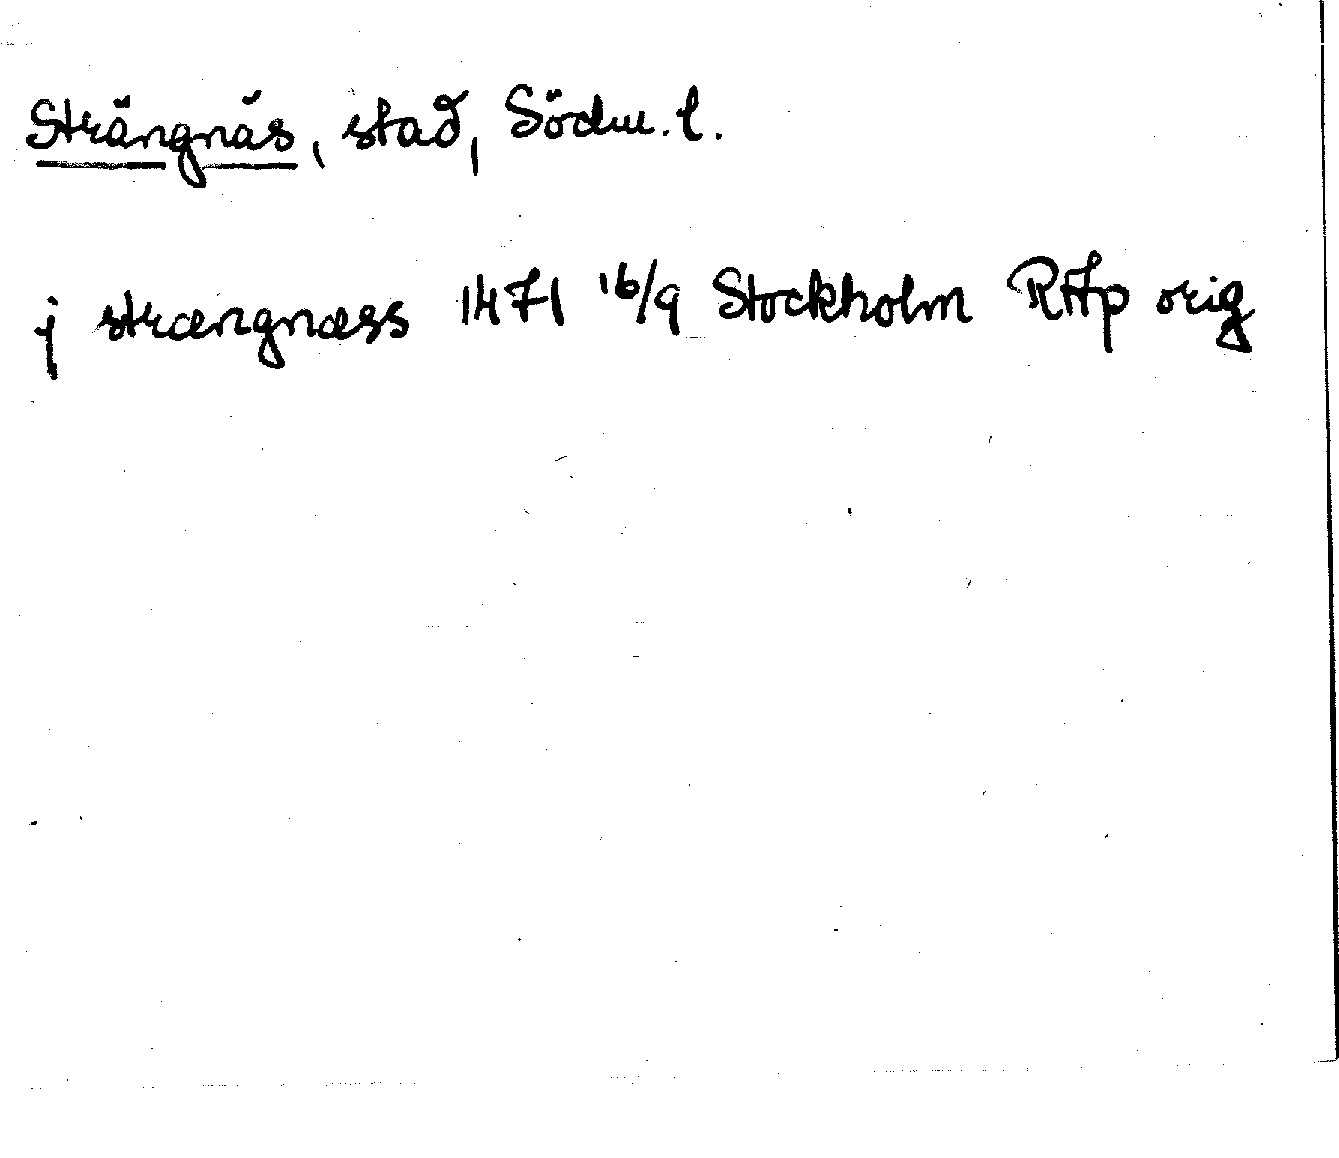 Strängnäs, stad, Södm. l.
j strængnæss 1471 16/9 Stockholm RAp orig